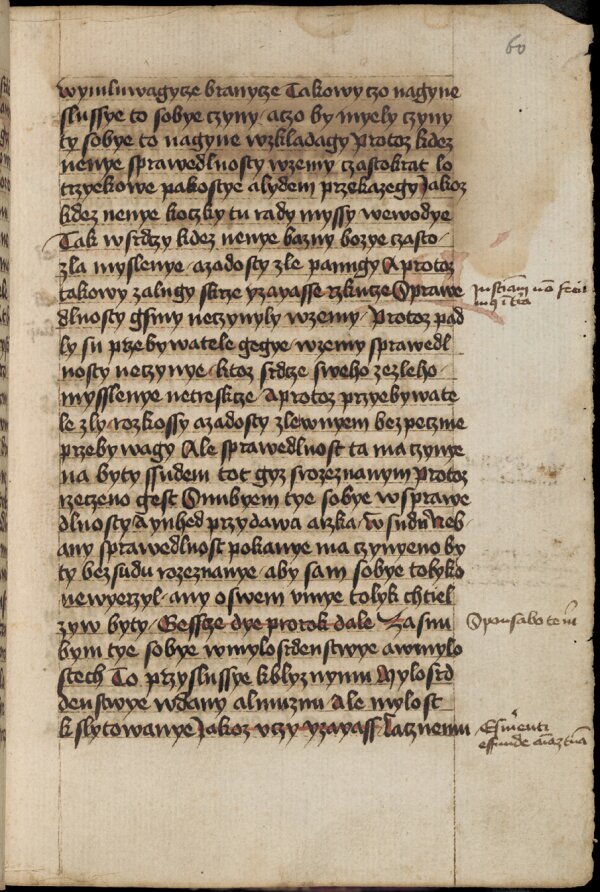 60
wymluwagycze branycze Takowy czo nagyne
slussye to sobye czyny aczo by myely czyny
ty sobye to nagyne wzkladagy Protoz kdez
nenye sprawedlnosty wzemy czastokrat lo
trzyekowe pakostye alydem przekazegy Jakoz
kdez nenye koczky tu rady myssy wewodye
Tak wsrdczy kdez nenye bazny bozye czasto
zla myslenye azadosty zle panugy Aprotoz
takowy zalugy skrze yzayasse rzkucze Sprawe
dlnosty gsmy neczynyly wzemy Protoz pad
ly su przebywatele gegye wzemy sprawedl
nosty neczynye ktoz srdcze sweho zezleho
mysslenye netreskcze Aprotoz przyebywate
le zly rozkossy azadosty zlewnyem bezpeczne
przebywagy Ale sprawedlnost ta ma czynye
na byty ssudem tot gyz srozeznanym Protoz
rzeczeno gest Snubyem tye sobye wsprawe
dlnosty Aynhed przydawa arzka w sudu Neb
any sprawedlnost pokanye ma czynyeno by
ty bez sudu rozeznanye aby sam sobye tolyko
newyerzyl any oswem vmye tolyk chtiel
zyw byty Gesscze dye prorok dale Zasnu
bym tye sobye wmylosrdenstwye awmylo
stech To przyslussye kblyznymu Mylosrd
denstwye wdany almuznu Ale mylost
kslytowanye Jakoz vczy yzayass Lacznemu
Sponsabo te